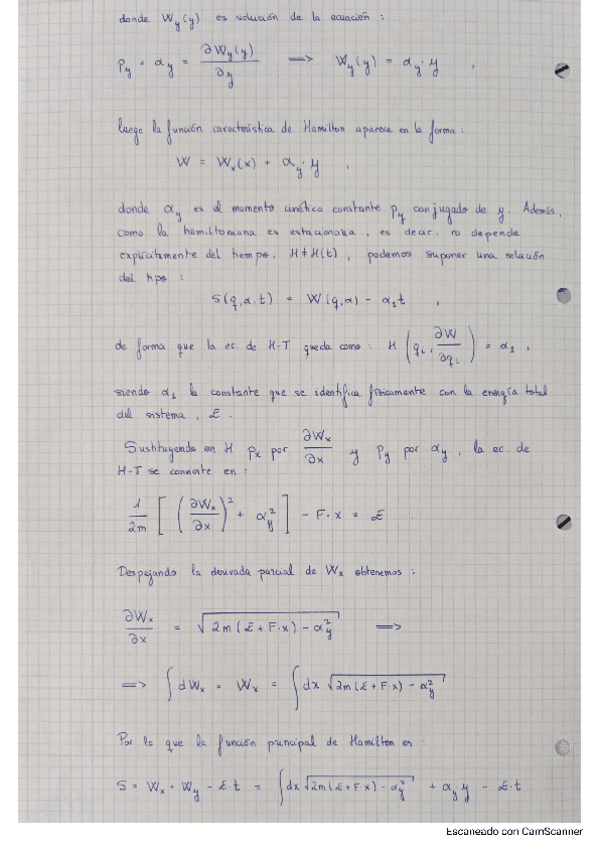 donde Wy(y) es solución de la ecuación :
Py = αy = ∂Wy(y)/∂y ⟹ Wy(y) = αy·y ,
luego la función característica de Hamilton aparece en la forma :
W = Wx(x) + αy·y .
donde αy es el momento cinético constante Py conjugado de y. Además,
como la hamiltoniana es estacionaria, es decir, no depende
explícitamente del tiempo, H≠H(t), podemos suponer una solución
del tipo :
S(q,α,t) = W(q,α) - α₁t ,
de forma que la ec. de H-J queda como : H (qi, ∂W/∂qi) = α₁ ,
siendo α₁ la constante que se identifica físicamente con la energía total
del sistema, E .
Sustituyendo en H Px por ∂Wx/∂x y Py por αy, la ec. de
H-J se convierte en :
1/2m [ (∂Wx/∂x)² + αy² ] - F·x = E .
Despejando la derivada parcial de Wx obtenemos :
∂Wx/∂x = √(2m(E + F·x) - αy²) ⟹
⟹ ∫dWx = Wx = ∫dx √(2m(E + F·x) - αy²)
Por lo que la función principal de Hamilton es :
S = Wx + Wy - E·t = ∫dx √(2m(E + F·x) - αy²) + αy y - E·t
Escaneado con CamScanner